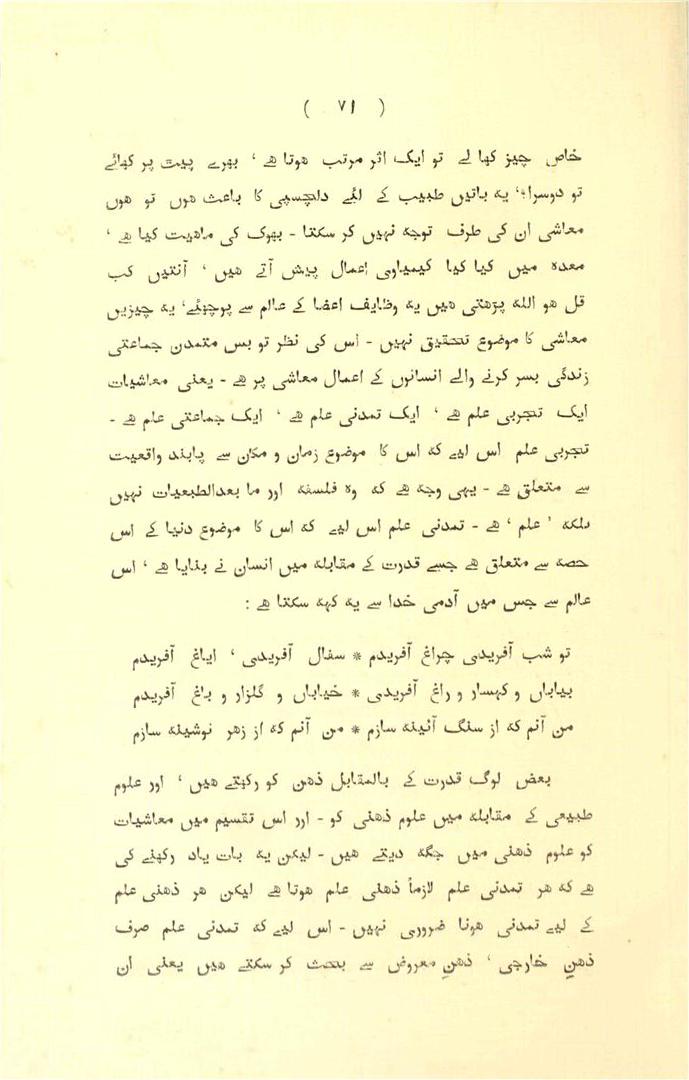 ( ۷۱ )
خاص چیز کھا لے تو ایک اثر مرتب ہوتا ہے ' بھرے پیت پر کھائے
تو دوسرا؛' یہ باتیں طبیب کے لئے دلچسپی کا باعث ہوں تو ہوں
معاشی ان کی طرف توجہ نہیں کر سکتا - بھوک کی ماہیت کیا ہے '
معدہ میں کیا کیا کیمیاوی اعمال پیش آتے ہیں ' آنتیں کب
قل ہو اللہ پڑھتی ہیں یہ وظایف اعضا کے عالم سے پوچھئے' یہ چیزیں
معاشی کا موضوع تحقیق نہیں - اس کی نظر تو بس متمدن جماعتی
زندگی بسر کرنے والے انسانوں کے اعمال معاشی پر ہے - یعنی معاشیات
ایک تجربی علم ہے ' ایک تمدنی علم ہے ' ایک جماعتی علم ہے -
تجربی علم اس لیے کہ اس کا موضوع زمان و مکان سے پابند واقعیت
سے متعلق ہے - یہی وجہ ہے کہ وہ فلسفہ اور ما بعدالطبعیات نہیں
بلکہ ' علم ' ہے - تمدنی علم اس لیے کہ اس کا موضوع دنیا کے اس
حصہ سے متعلق ہے جسے قدرت کے مقابلہ میں انسان نے بنایا ہے ' اس
عالم سے جس میں آدمی خدا سے یہ کہہ سکتا ہے :
تو شب آفریدی چراغ آفریدم * سفال آفریدی ' ایاغ آفریدم
بیاباں و کہسار و راغ آفریدی * خیاباں و گلزار و باغ آفریدم
من آنم کہ از سنگ آئینہ سازم * من آنم کہ از زہر نوشینہ سازم
بعض لوگ قدرت کے بالمقابل ذہن کو رکھتے ہیں ' اور علوم
طبیعی کے مقابلہ میں علوم ذہنی کو - اور اس تقسیم میں معاشیات
کو علوم ذہنی میں جگہ دیتے ہیں - لیکن یہ بات یاد رکھنے کی
ہے کہ ہر تمدنی علم لازماً ذہنی علم ہوتا ہے لیکن ہر ذہنی علم
کے لیے تمدنی ہونا ضروری نہیں - اس لیے کہ تمدنی علم صرف
ذہنِ خارجی ' ذہنِ معروض سے بحث کر سکتے ہیں یعنی ان